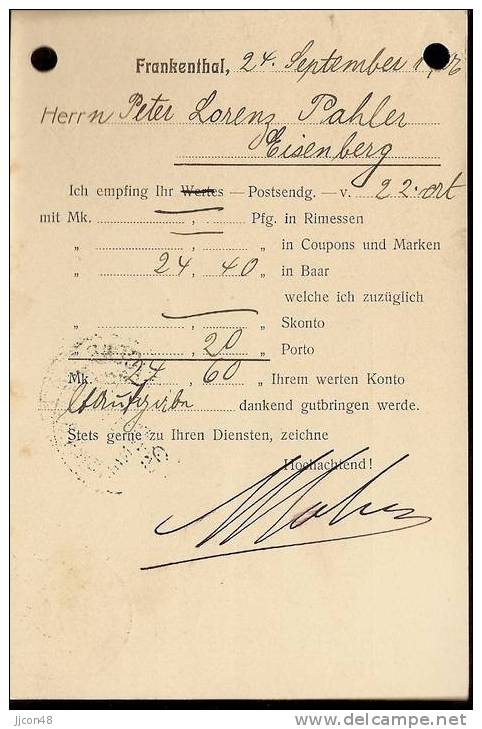 Frankenthal, 24. September 1906
Herrn Peter Lorenz Pahler
Eisenberg
Ich empfing Ihr Wertes — Postsendg. — v. 22. ort
mit Mk. , Pfg. in Rimessen
„ , „ in Coupons und Marken
„ 24, 40 „ in Baar
welche ich zuzüglich
„ , „ Skonto
„ , 20 „ Porto
Mk. 24 60 „ Ihrem werten Konto
dankend gutbringen werde.
Stets gerne zu Ihren Diensten, zeichne
Hochachtend!
jjcon48
www.delcampe.net